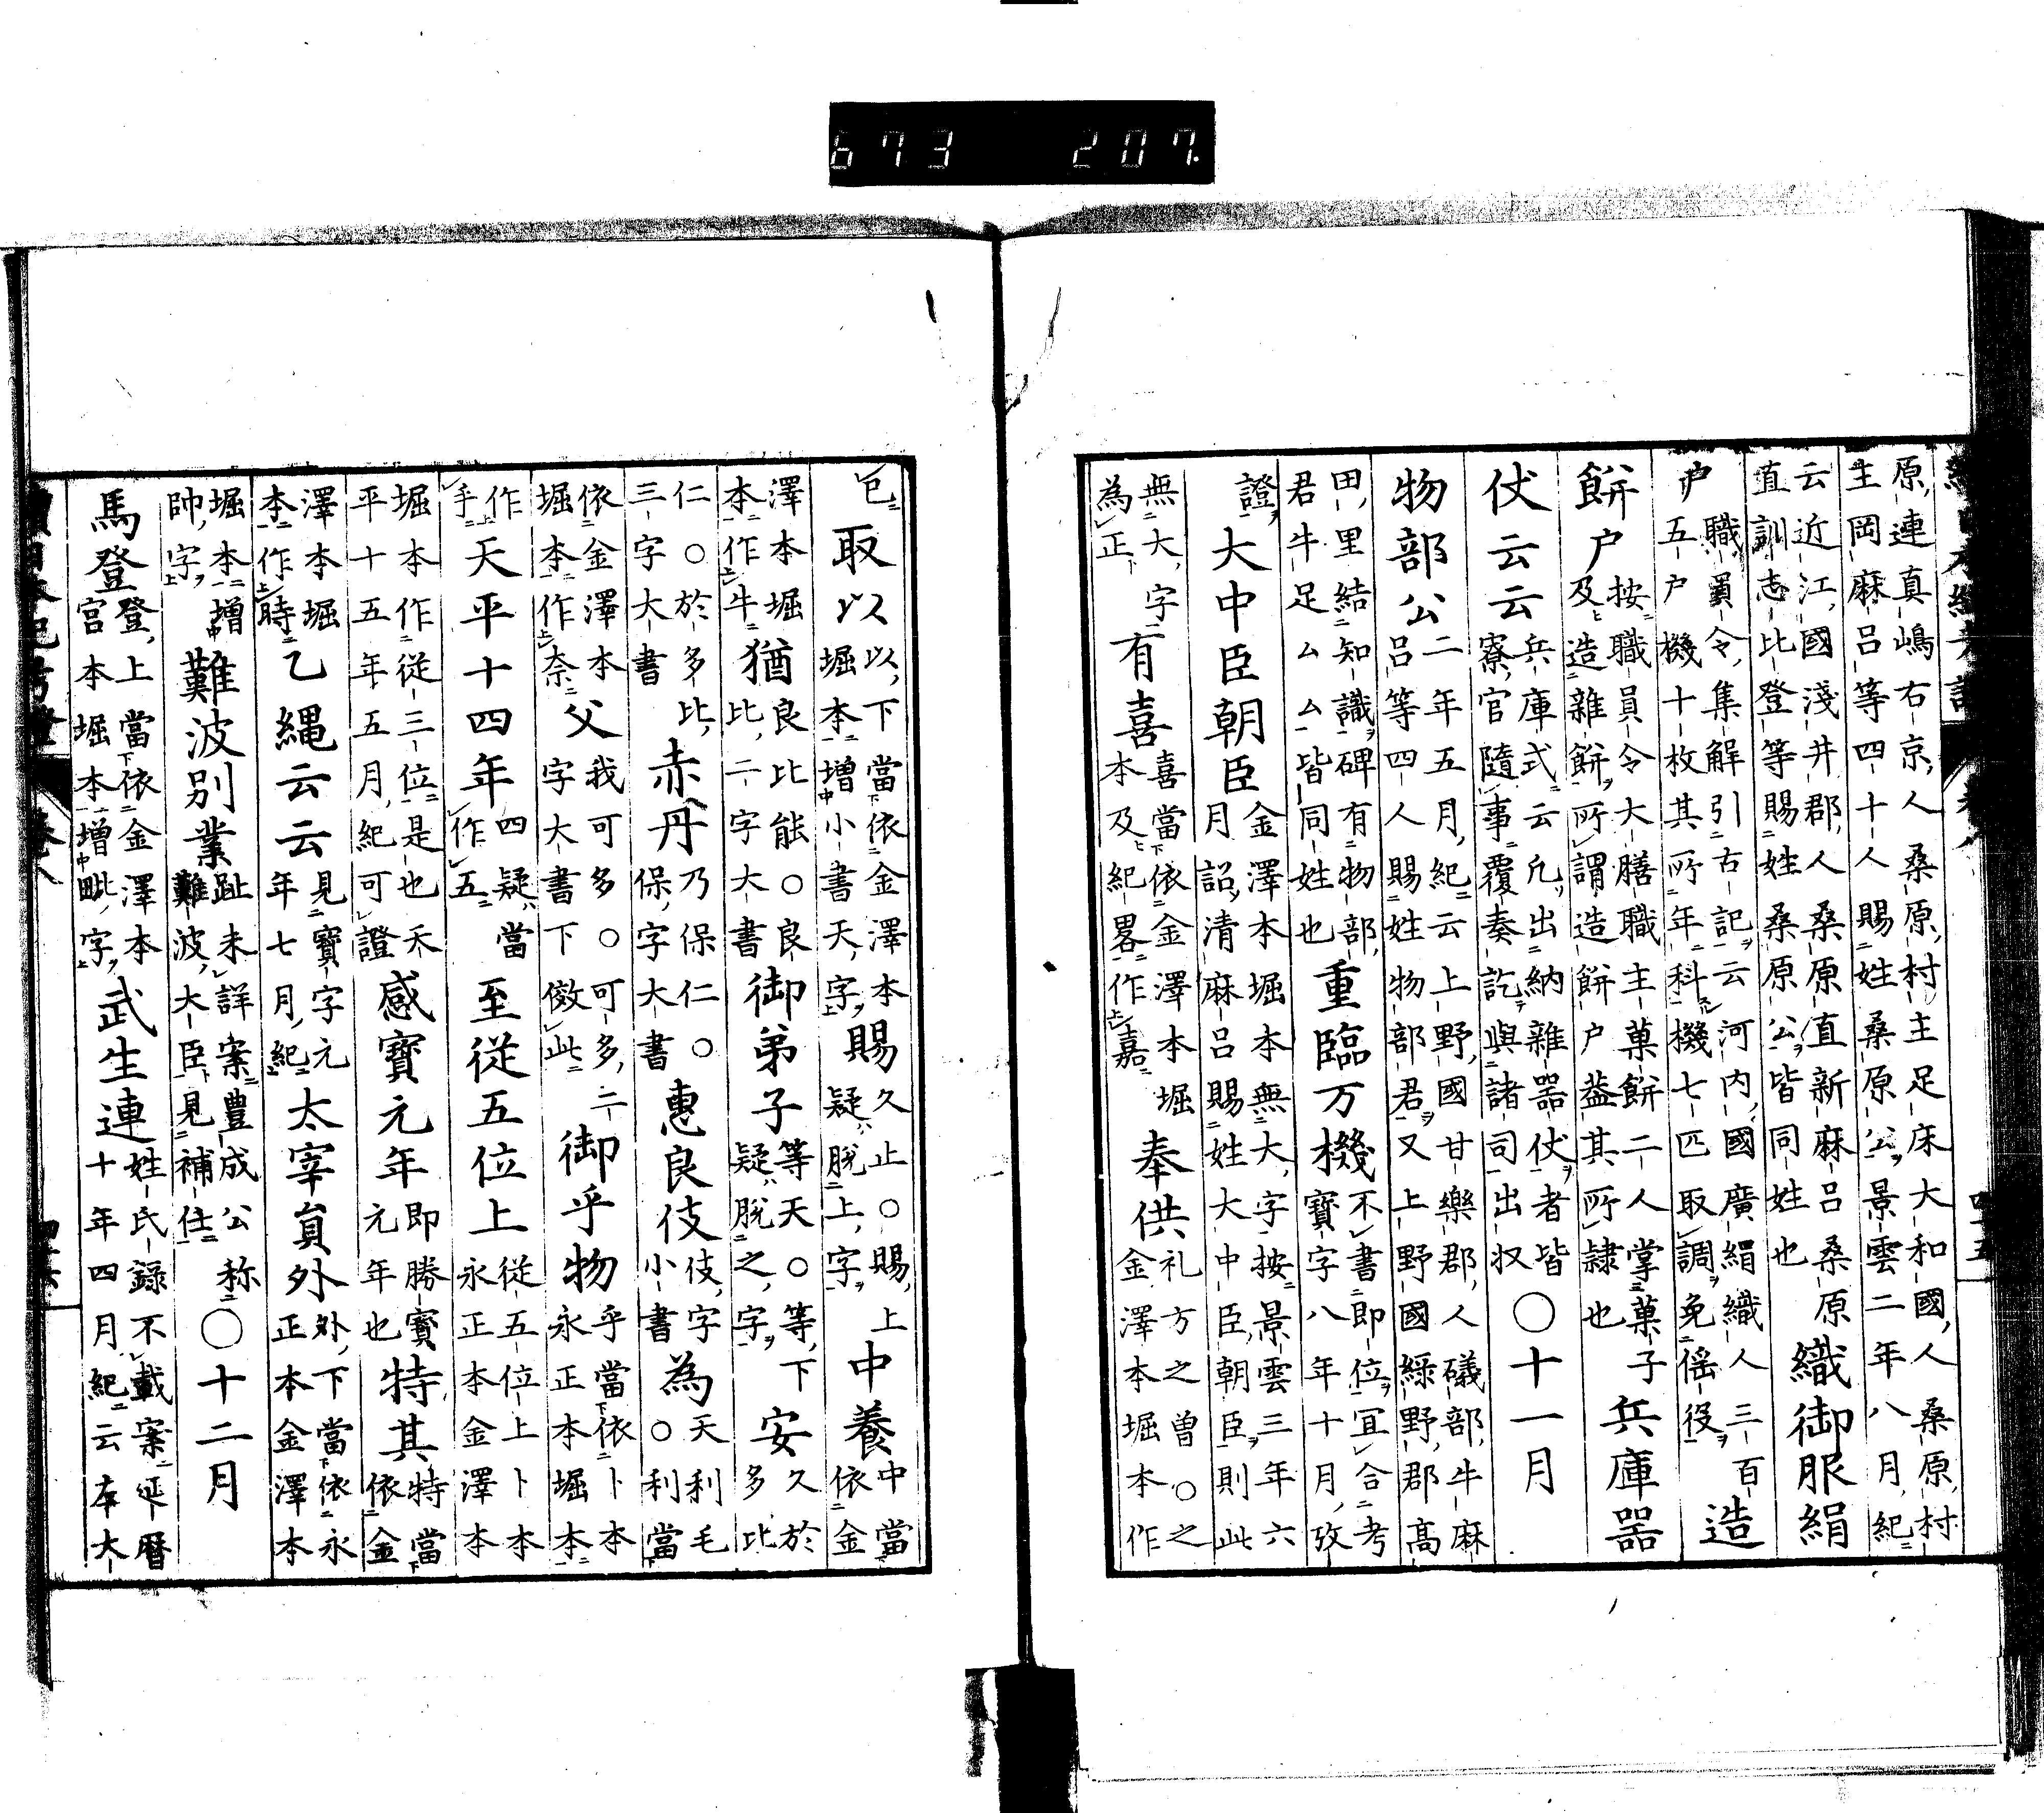 673 207
原連真嶋右京人桑原村主足床大和國人桑原村
主岡麻呂等四十人賜姓桑原公景雲二年八月紀
云近江國淺井郡人桑原直新麻呂桑原
直訓志比登等賜姓桑原公皆同姓也
織御服絹
職員令集解引古記云河内國廣絹織人三百
戸五戸機十枚其所年料機七匹取調免徭役
造
餅戸
按職員令大膳職主菓餅二人掌菓子
及造雜餅所謂造餅戸蓋其所隷也
兵庫器
仗云云
兵庫式云凡出納雜器仗者皆
寮官隨事覆奏訖與諸司出収
○十一月
物部公
二年五月紀云上野國甘樂郡人礒部牛麻
呂等四人賜姓物部君又上野國綠野郡高
田里結知識碑有物部
君牛足ムムム皆同姓也
重臨万機
不書即位冝合考
寶字八年十月攷
證
大中臣朝臣
金澤本堀本無大字按景雲三年六
月詔清麻呂賜姓大中臣朝臣則此
無大字
為正
有喜
喜當依金澤本堀
本及紀畧作嘉
奉供
礼方之曽○之
金澤本堀本作
四十五
包
取以
以下當依金澤本
堀本増小書天字
賜
久止○賜上
疑脱上字
中養
中當
依金
澤本堀
本作牛
猶
良比能○良
比二字大書
御弟子
等天○等下
疑脱之字
安
久於
多比
仁○於多比
三字大書
赤丹
乃保仁○
保字大書
惠良伎
伎字
小書
為
天利毛
○利當
依金澤本
堀本作奈
父
我可多○可多二
字大書下倣此
御乎物
乎當依卜本
永正本堀本
作
乎
天平十四年
四疑當
作五
至從五位上
從五位上卜本
永正本金澤本
堀本作從三位是也天
平十五年五月紀可證
感寶元年
即勝寳
元年也
特其
特當
依金
澤本堀
本作時
乙縄云云
見寶字元
年七月紀
太宰員外
外下當依永
正本金澤本
堀本増
帥字
難波別業
趾未詳案豊成公称
難波大臣見補任
○十二月
馬登
登上當依金澤本
宮本堀本増毗字
武生連
姓氏録不載案延暦
十年四月紀云本大